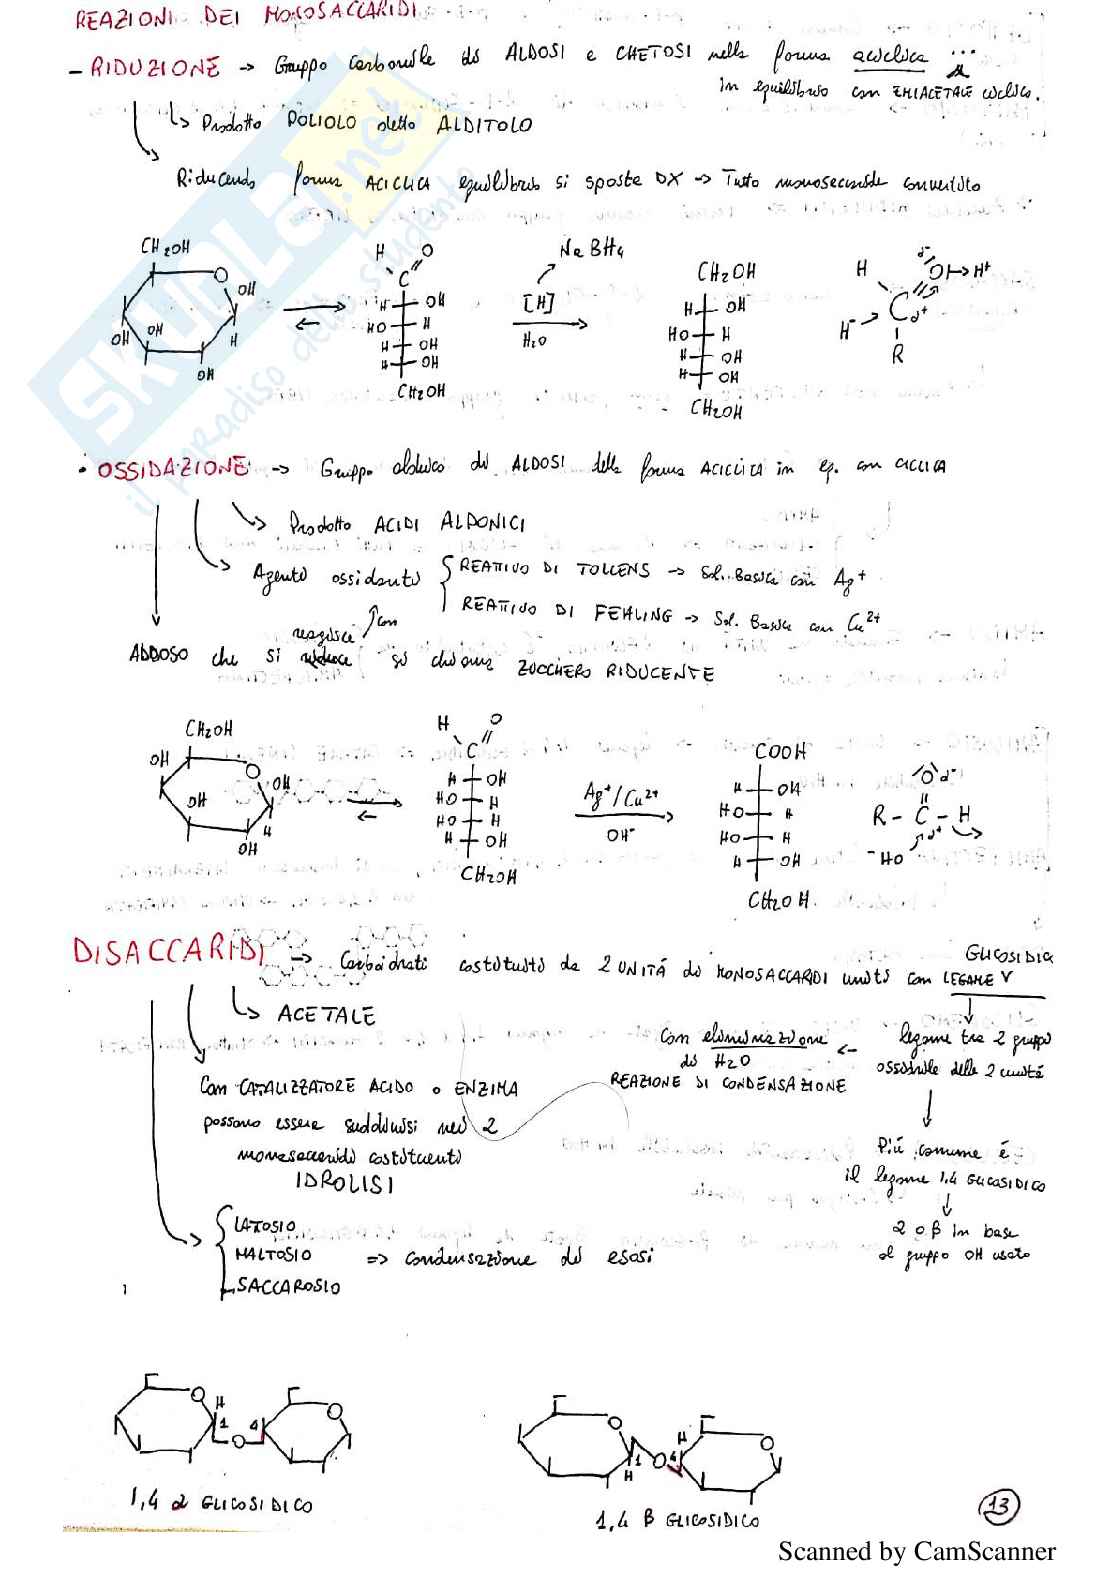 REAZIONI DEI MONOSACCARIDI
- RIDUZIONE → Gruppo carbonile di ALDOSI e CHETOSI nella forma aciclica ...
in equilibrio con EMIACETALE ciclico.
↳ Prodotto POLIOLO detto ALDITOLO
Riducendo forma ACICLICA equilibrio si sposta DX → Tutto monosaccaride convertito
CH2OH
O
OH
OH
OH
H
OH
H O
C
H OH
HO H
H OH
H OH
CH2OH
NaBH4
[H]
H2O
CH2OH
H OH
HO H
H OH
H OH
CH2OH
H
δ-
O H+
H- C δ+
R
• OSSIDAZIONE → Gruppo aldeico di ALDOSI della forma ACICLICA in eq. con CICLICA
Prodotto ACIDI ALDONICI
Agente ossidante
REATTIVO DI TOLLENS → Sol. Basica con Ag+
REATTIVO DI FEHLING → Sol. Basica con Cu2+
reagisce con
ALDOSO che si riduce si chiama ZUCCHERO RIDUCENTE
CH2OH
OH
O
OH
OH
H
OH
H O
C
H OH
HO H
HO H
H OH
CH2OH
Ag+/Cu2+
OH-
COOH
H OH
HO H
HO H
H OH
CH2OH
O δ-
R - C - H
δ+
-HO
DISACCARIDI → Carboidrati costituito da 2 UNITÁ di MONOSACCARIDI uniti con LEGAME GLICOSIDICO
↳ ACETALE
Con CATALIZZATORE ACIDO o ENZIMA
possono essere suddivisi nei 2
monosaccaridi costituenti
IDROLISI
legame tra 2 gruppi
ossidrile delle 2 unitá
Con eliminazione
di H2O
REAZIONE DI CONDENSAZIONE
Piú comune é
il legame 1,4 GLICOSIDICO
α o β in base
al gruppo OH usato
LATTOSIO
MALTOSIO
SACCAROSIO
⇒ condensazione di esosi
O
H
1
4
O
O
1,4 α GLICOSIDICO
O
1
H
O
4
H
O
1,4 β GLICOSIDICO
13
Scanned by CamScanner
SKUOLA.net
il paradiso dello studente